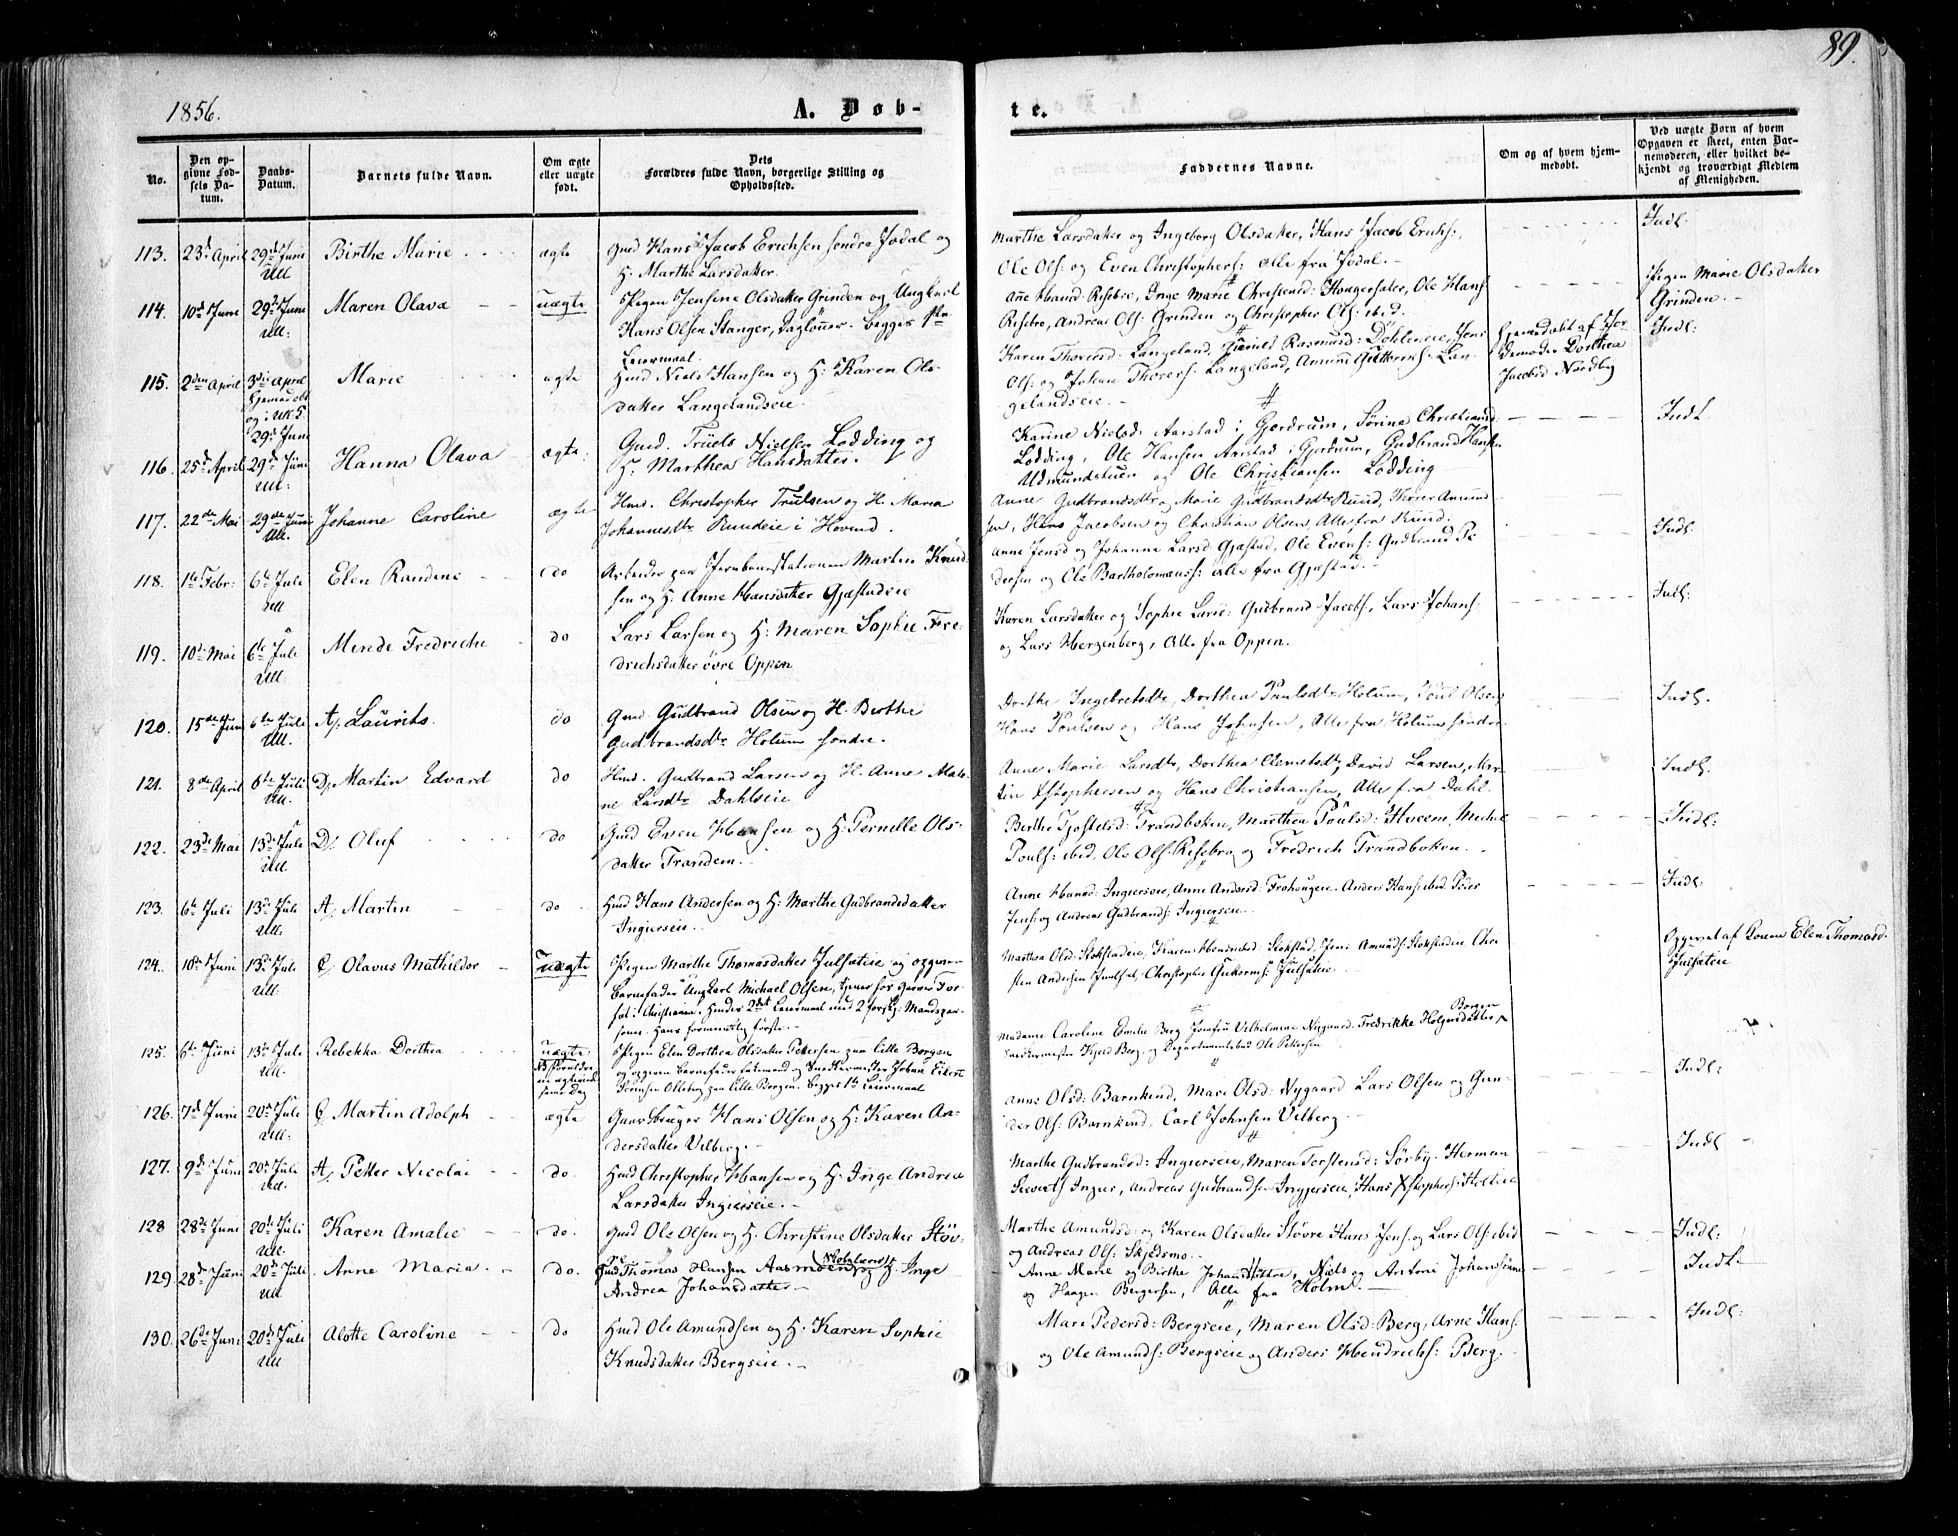 1856.
A. Døb-
te.
89.
No.
Den opgivne Fødsels Datum.
Daabs-Datum.
Barnets fulde Navn.
Om ægte eller uægte født.
Dets Forældres fulde Navn, borgerlige Stilling og Opholdssted.
Faddernes Navne.
Om og af hvem hjemmedøbt.
Ved uægte Børn af hvem Opgaven er skeet, enten Barnemoderen, eller hvilket bekjendt og troværdigt Medlem af Menigheden.
113. 23d April 29de Juni Ull Birthe Marie ægte
Gmd Hans Jacob Erichsen søndre Jødal og
H: Marthe Larsdatter.
Marthe Larsdatter og Ingeborg Olsdatter, Hans Jacob Erichs:,
Ole Ols: og Even Christophers: alle fra Jødal.
Indl
114. 10de Juni 29de Juni Ull. Maren Olava uægte
Pigen Jensine Olsdatter Grinden og Ungkarl
Hans Olsen Stanger, Dagløner. begges 1ste
Leiermaal.
Anne Hansd: Risebroe, Inge Marie Christensd: Kongerhaler, Ole Hans:
Risebro, Andreas Ols: Grinden og Christopher Ols: ibid.
Pigen Marie Olsdatter
Grinden.
115. 2den April 3die April Hjemmedøbt og i Ull. K. 29de Juni Marie ægte
Hmd Niels Hansen og H: Karen Ols-
datter Langelandseie.
Karen Thorersd: Langeland, Gunild Rasmusd: Dehleneie, Jens
Ols: og Johan Thorers: Langeland, Amund Guttorms: Lan-
gelandseie.
Hjemmedøbt af Jor-
demoder Dorthea
Jacobsd Nordby
Indl:
116. 25de April 29de Juni Ull: Hanna Olava ægte
Gmd. Truels Nielsen Lodding og
H. Marthea Hansdatter.
Karine Nielsd: Aarstad i Gjerdrum, Sørine Christiansd:
Lodding, Ole Hansen Aarstad i Gjerdrum, Gudbrand Hansen
Udmundstuen og Ole Christiansen Lodding
Indl.
117. 22de Mai 29de Juni Ull. Johanne Caroline ægte
Hmd. Christopher Trulsen og H. Maria
Johannesdtr Rundeie i Hovend.
Anne Gudbrandsdtr, Marie Gudbrandsdtr Ruud, Thorer Amund-
sen, Hans Jacobsen og Christian Olsen, Alle fra Ruud.
118. 1ste Febr: 6te Juli Ull Elen Randine do
Arbeider paa Jernbanestationen Martin Knud-
sen og H: Anne Hansdatter Gjæstadeie
Anne Jensd og Johanne Larsd Gjæstad, Ole Evens: Gudbrand Pe-
dersen og Ole Bartholomæus: alle fra Gjæstad.
Indl.
119. 10de Mai 6te Juli Ull. Minde Fredriche do
Lars Larsen og H: Maren Sophie Fre-
drichsdatter øvre Oppen
Karen Larsdatter og Sophie Larsd: Gudbrand Jacobs:, Lars Johans:
og Lars Hergenberg, Alle fra Oppen.
Indl:
120. 15de Juni 6te Juli Ull. A, Laurits. do
Gmd. Gudbrand Olsen og H. Berthe
Gudbrandsdtr Holum søndre.
Dorthe Ingebretsdtr, Dorthea Paulsdtr Holum, Poul Olsen,
Hans Poulsen og Hans Johnsen, Alle fra Holum søndre
Indl.
121. 8de April 6te Juli Ull. D, Martin Edvard do
Hmd. Gudbrand Larsen og H. Anne Male-
ne Larsdtr Dahlseie
Anne Marie Larsdtr, Dorthea Clemetsdtr, David Larsen, Mar-
tin Xstophersen og Hans Christiansen, Alle fra Dahl.
Indl.
122. 23de Mai 13de Juli Ull D, Oluf do
Gmd Even Hansen og H: Pernille Ols-
datter Trandem.
Berthe Tjostelsd: Trandbøken, Marthea Poulsd: Hveem, Michel
Pouls: ibid, Ole Ols: Risebro og Fredrich Trandbøken.
Indl:
123. 6te Juli 13de Juli Ull. A, Martin do
Hmd Hans Andersen og H: Marthe Gudbrandsdatter
Ingierseie.
Anne Hansd: Ingierseie, Anne Andersd: Frohougeie. Anders Hans: ibid Peder
Jens: og Andreas Gudbrands: Ingierseie.
Indl:
124. 10de Juni 13de Juli Ull C, Olavus Mathildor uægte
Pigen Marthe Thomasdatter Julsæteie og opgiven
Barnefader Ungkarl Michael Olsen, tjener hos Garver
i Christiania. Hendes 2det Leiermaal med 2 forskj: Mandsper-
soner. Hans formentlig første.
Marthea Olsd: Stokstadeie, Karen Hansd: Stokstad, Jens Amunds: Stokstadeie, Chri-
sten Andersen, Christopher Guttorms: Julsæteie.
Opgivet af Konen Elen Thomasd.
Julsæteie
125. 6te Juni 13de Juli Ull. Rebekka Dorthea uægte.
Pigen Elen Dorthea Olsdatter Pettersen paa lille Borgen
og opgiven Barnefader Snedkermester Johan Eilert
paa lille Borgen. Begges 1ste Leiermaal
Madame Caroline Emilie Berg Jomfru Vilhelmine Nygaard. Fredrikke Holgersdatter Borgen
Snedkermester Kjeld Berg. og Departementsbud Ole Pettersen
126. 7de Juni 20de Juli Ull. C, Martin Adolph ægte
Gaardbruger Hans Olsen og H: Karen An-
dersdatter Velberg.
Anne Olsd: Barnkind, Mari Olsd: Nygaard Lars Olsen og Gun-
der Ols: Barnkind, Carl Johnsen Velberg
Indl:
127. 9de Juni 20de Juli Ull. A, Petter Nicolai do.
Hmd Christopher Hansen og H: Inge Andrea
Larsdatter Ingierseie.
Marthe Gudbrandsd: Ingierseie, Maren Torstensd: Sørby. Herman
Siverts Ingier, Andreas Gudbrandsen Ingjerseie, Hans Xstophers:
Indl
128 28de Juni 20de Juli Ull. Karen Amalie do.
Gmd Ole Olsen og H. Christine Olsdatter Støv-
re
Marthe Amundsd: og Karen Olsdatter Støvre Hans Jens: og Lars Ols: ibid
og Andreas Ols: Skjedsmo.
Indl:
129. 28de Juni 20de Juli Ull Anne Maria. do.
Gmd Thomas Hansen Aasmoen og H. Inge
Andrea Johansdatter
Anne Marie og Birthe Johansdøttre, Niels og Antoni Johansønner
og Haagen Bergersen, Alle fra Holm.
Indl.
130. 26de Juni 20de Juli Ull Alotte Caroline do
Hmd Ole Amundsen og H. Karen Sophie
Knudsdatter Bergseie.
Mari Pedersd: Bergseie, Maren Olsd: Berg, Arne Hans:
og Ole Amunds: Bergseie og Anders Hendrichs: Berg.
Indl: